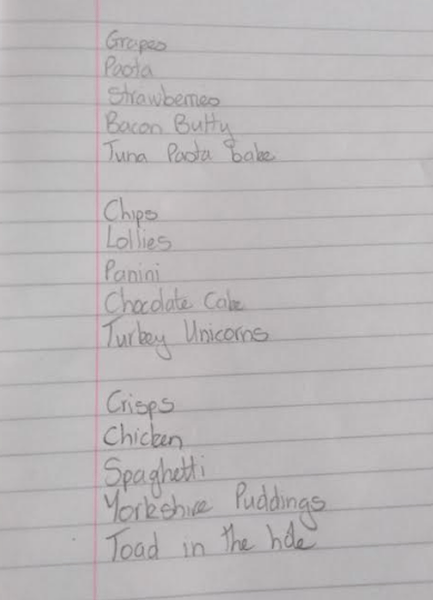 Grapes
Pasta
Strawberries
Bacon Butty
Tuna Pasta bake
Chips
Lollies
Panini
Chocolate Cake
Turkey Unicorns
Crisps
Chicken
Spaghetti
Yorkshire Puddings
Toad in the hole